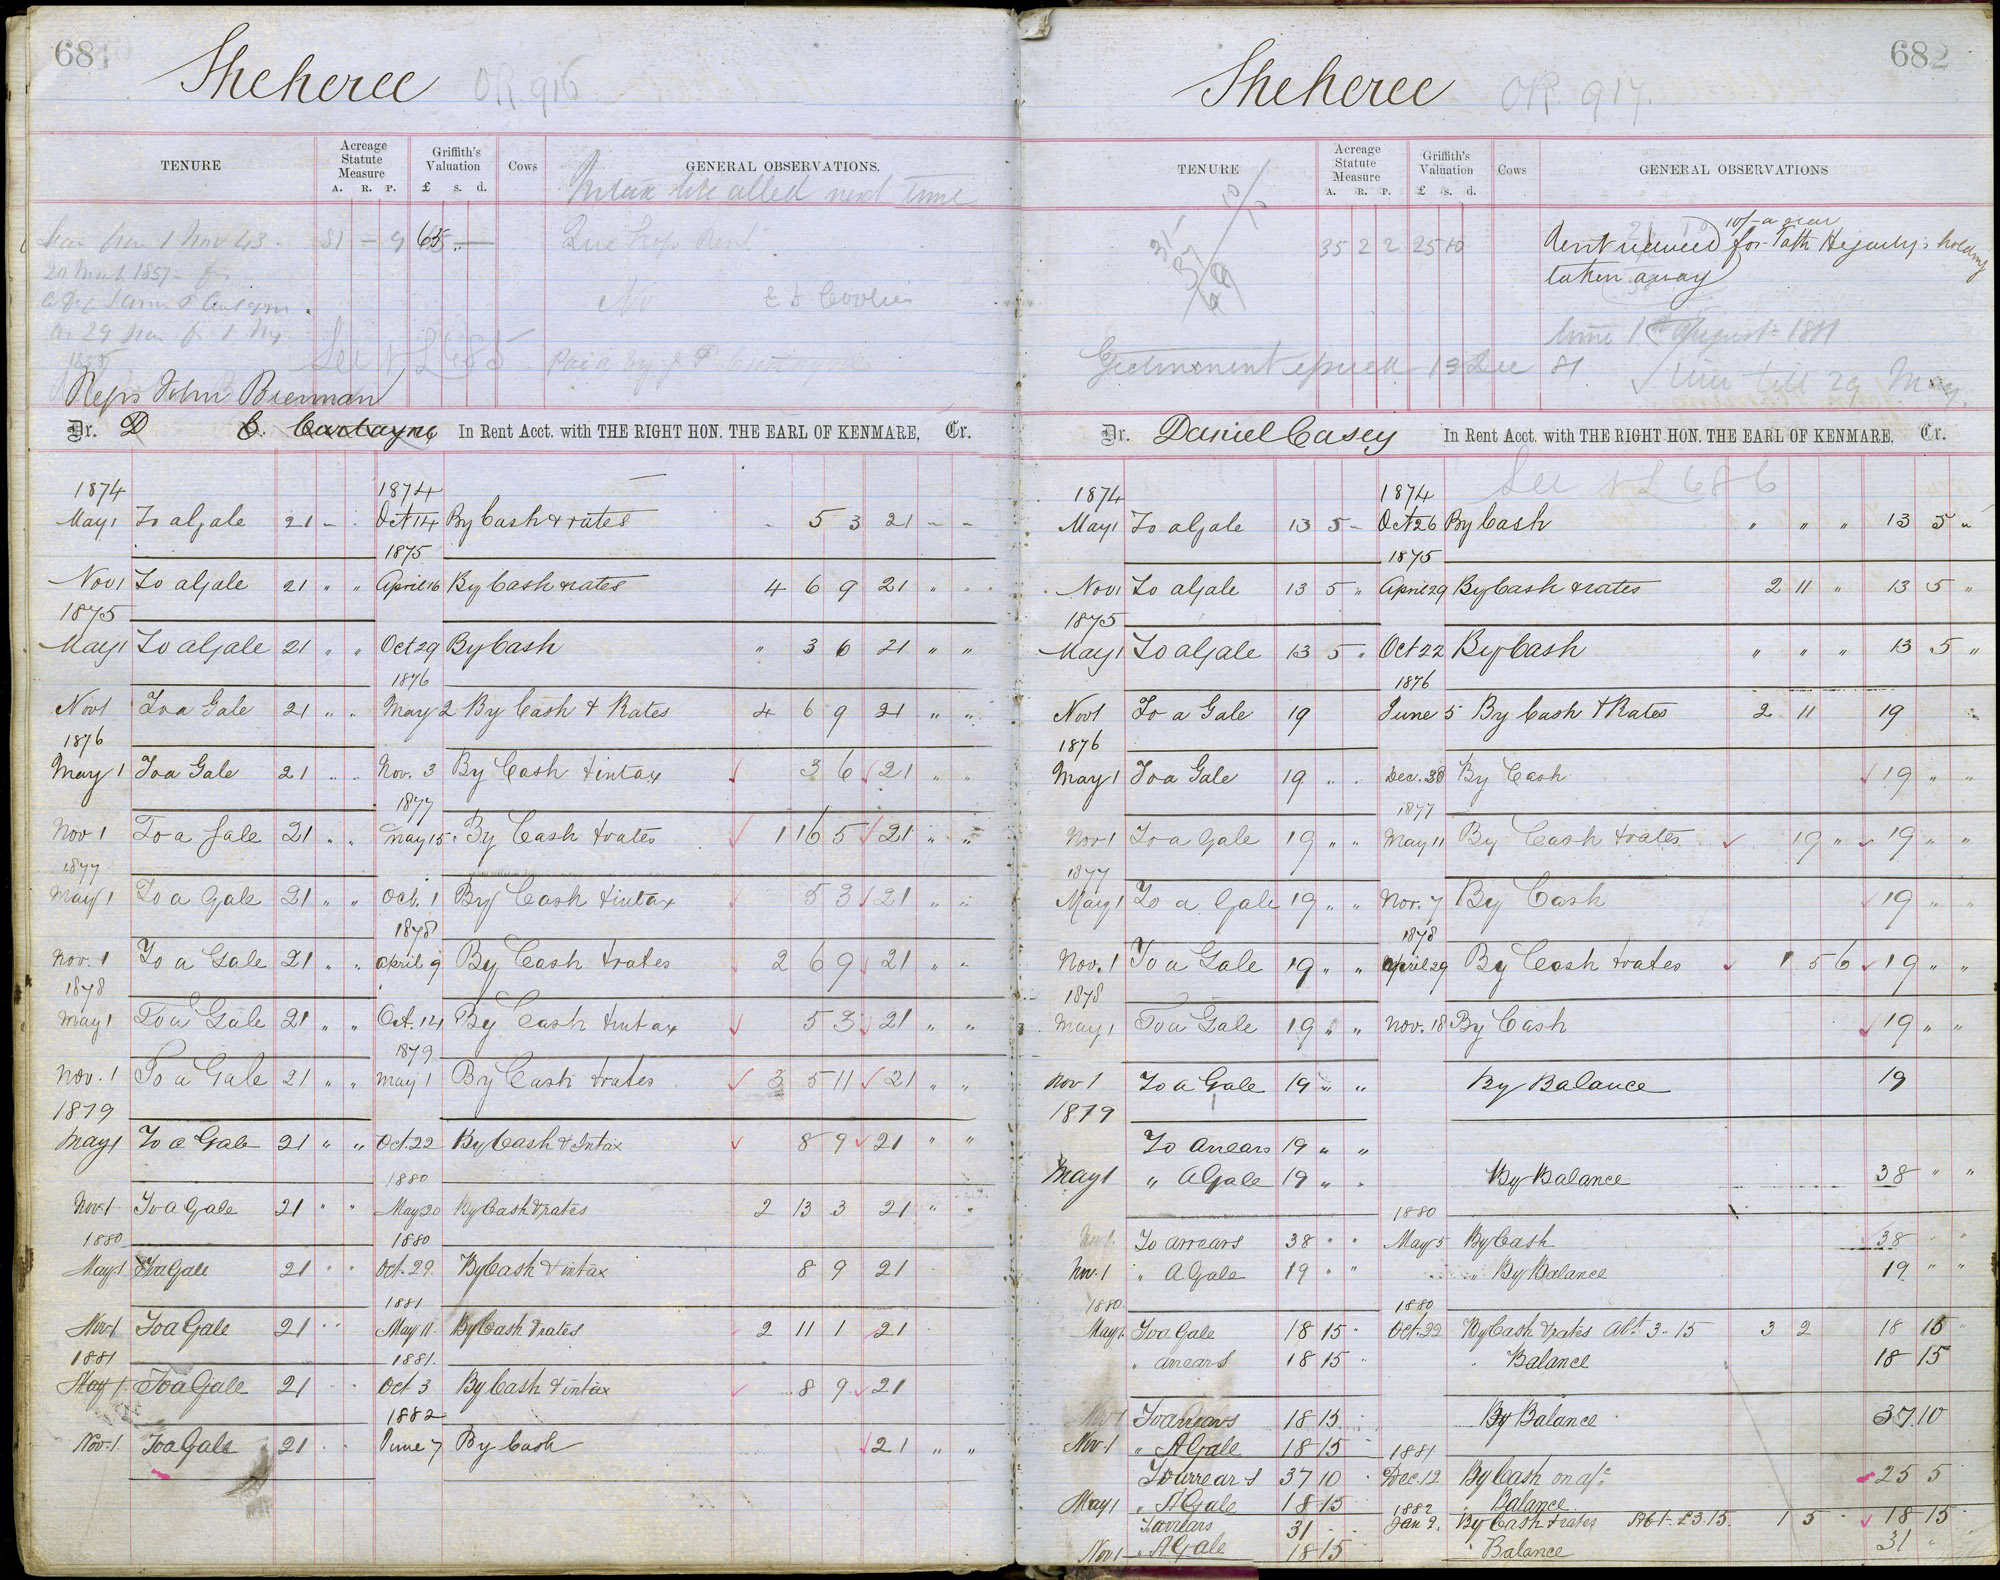 681
Sheheree OR 916
TENURE
Acreage Statute Measure
A. R. P.
Griffith's Valuation
£ s. d.
Cows
GENERAL OBSERVATIONS.
next time
1 Nov 43 81 - 9 65 " -
20 1857
No
Reps John Brennan
Dr. D C. In Rent Acct. with THE RIGHT HON. THE EARL OF KENMARE, Cr.
1874 1874
May 1 To a Gale 21 - - Oct 14 By Cash & rates - 5 3 21 - -
1875
Nov 1 To a Gale 21 " " April 16 By Cash & rates 4 6 9 21 " "
1875
May 1 To a Gale 21 " " Oct 29 By Cash " 3 6 21 " "
1876
Nov 1 To a Gale 21 " " May 2 By Cash & Rates 4 6 9 21 " "
1876
May 1 To a Gale 21 " " Nov. 3 By Cash & intax 3 6 21 " "
1877
Nov 1 To a Gale 21 " " May 15 By Cash & rates 1 16 5 21 " "
1877
May 1 To a Gale 21 " " Oct. 1 By Cash & intax 5 3 21 " "
1878
Nov. 1 To a Gale 21 " " April 9 By Cash & rates 2 6 9 21 " "
1878
May 1 To a Gale 21 " " Oct. 14 By Cash & intax 5 3 21 " "
1879
Nov. 1 To a Gale 21 " " May 1 By Cash & rates 3 5 11 21 " "
1879
May 1 To a Gale 21 " " Oct. 22 By Cash & Intax 8 9 21 " "
1880
Nov. 1 To a Gale 21 " " May 20 By Cash & rates 2 13 3 21 " "
1880 1880
May 1 To a Gale 21 " " Oct. 29 By Cash & intax 8 9 21
1881
Nov 1 To a Gale 21 " " May 11. By Cash & rates 2 11 1 21
1881 1881.
May 1 To a Gale 21 Oct 3 By Cash & intax 8 9 21
1882
Nov. 1 To a Gale 21 June 7 By Cash 21 " "
682
Sheheree OR 917.
TENURE
Acreage Statute Measure
A. R. P.
Griffith's Valuation
£ s. d.
Cows
GENERAL OBSERVATIONS
35 2 2 25 10
10/- a year
Rent reduced for Path Hegarty's holding
taken away
1st August 1881
19 Dec 81 till 29 May.
Dr. Daniel Casey In Rent Acct. with THE RIGHT HON. THE EARL OF KENMARE. Cr.
See N L 686
1874 1874
May 1 To a Gale 13 5 - Oct 26 By Cash " " " 13 5 "
1875
Nov 1 To a Gale 13 5 " April 29 By Cash & rates 2 11 " 13 5 "
1875
May 1 To a Gale 13 5 " Oct 22 By Cash " " " 13 5 "
1876
Nov 1 To a Gale 19 June 5 By Cash & Rates 2 11 19
1876
May 1 To a Gale 19 " " Dec. 30 By Cash 19 " "
1877
Nov 1 To a Gale 19 " " May 11 By Cash & rates 19 " 19 " "
1877
May 1 To a Gale 19 " " Nov. 7 By Cash 19 " "
1878
Nov. 1 To a Gale 19 " " April 29 By Cash & rates 1 5 6 19 " "
1878
May 1 To a Gale 19 " " Nov. 18 By Cash 19 " "
Nov 1 To a Gale 19 " " By Balance 19
1879
To Arrears 19 " "
May 1 " A Gale 19 " " By Balance 38 " "
1880
To arrears 38 " " May 5 By Cash 38 " "
Nov. 1 " A Gale 19 " " " By Balance 19 " "
1880 1880
May 1 To a Gale 18 15 Oct. 22 By Cash & rates Abt. 3-15 3 2 18 15
" arrears 18 15 " Balance 18 15
Nov 1 To arrears 18 15 By Balance 37. 10
Nov. 1 " A Gale 18 15 1881
To arrears 37 10 Dec. 12 By Cash on a/c 25 5
May 1 " A Gale 18 15 1882 " Balance
To arrears 31 Jan 2. By Cash & rates Abt. £3.15. 1 5 18 15
Nov 1 " A Gale 18 15 " Balance 31